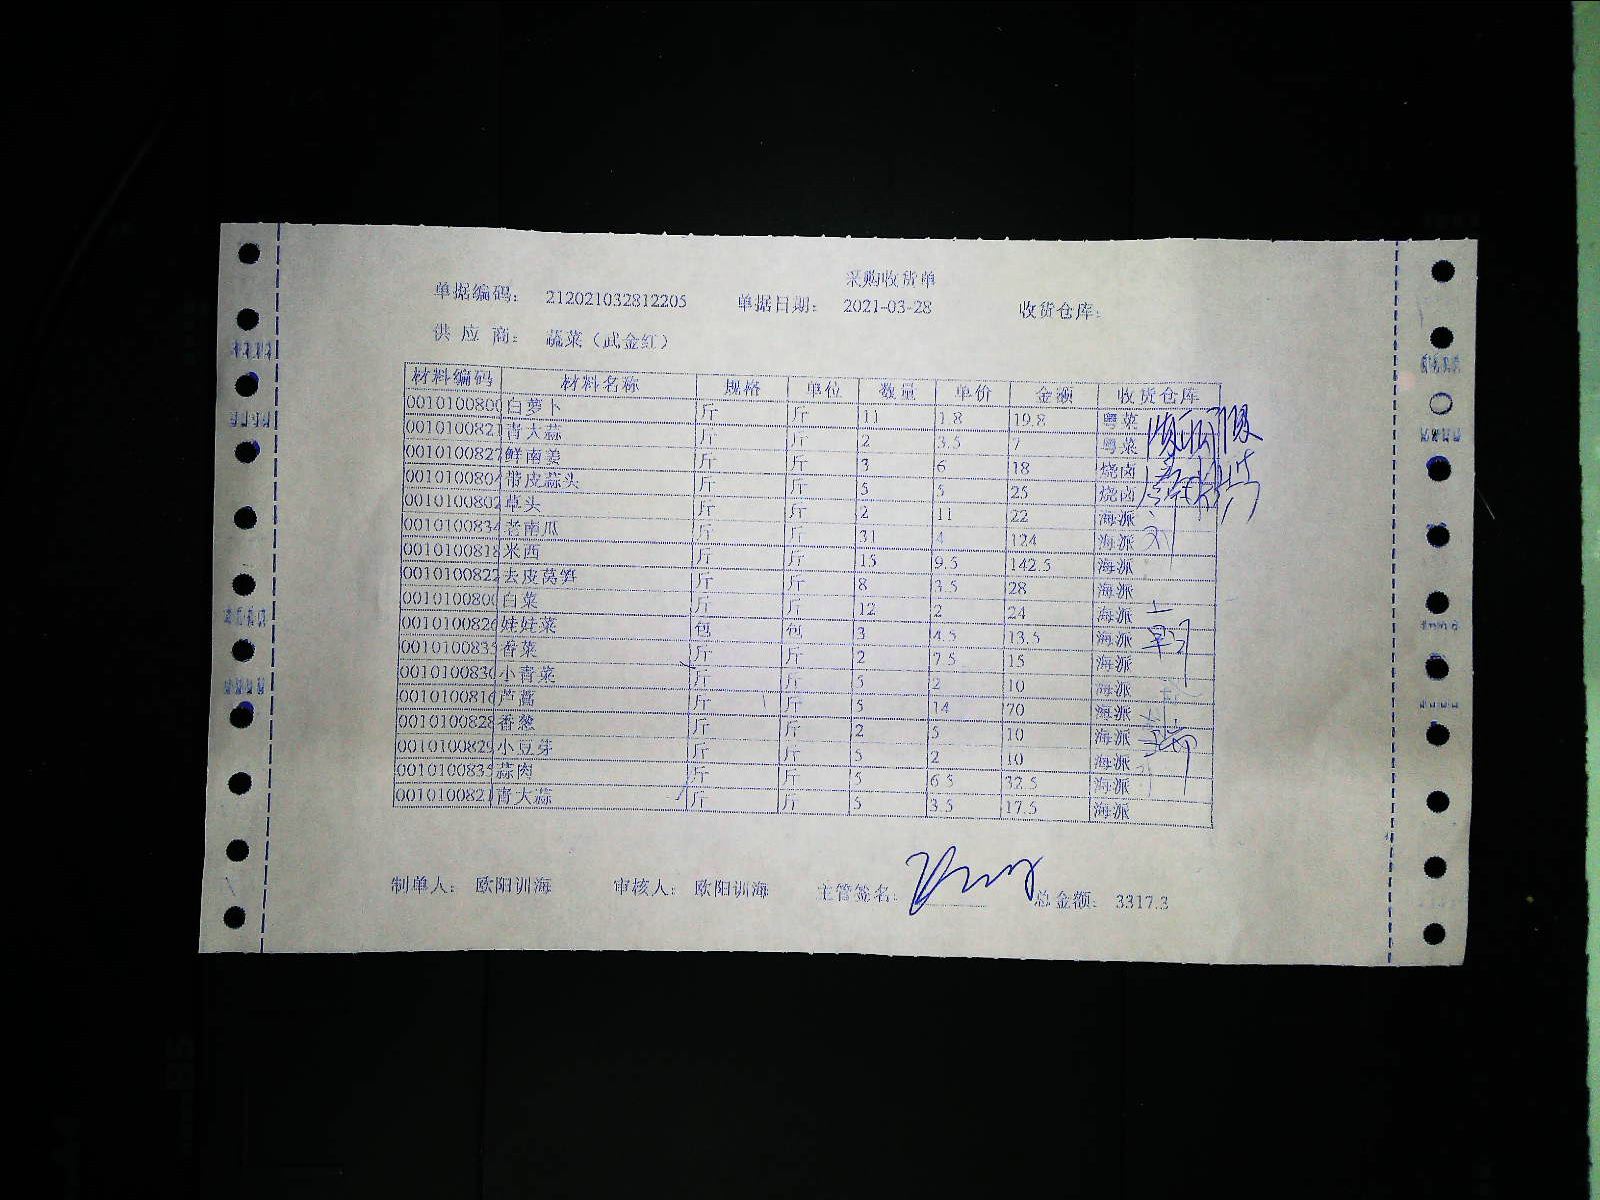 采购收货单
单据编码： 212021032812205 单据日期： 2021-03-28 收货仓库：
供 应 商： 蔬菜（武金红）
材料编码 材料名称 规格 单位 数量 单价 金额 收货仓库
0010100800 白萝卜 斤 斤 11 1.8 19.8 粤菜
0010100821 青大蒜 斤 斤 2 3.5 7 粤菜
0010100827 鲜南姜 斤 斤 3 6 18 烧卤
0010100804 带皮蒜头 斤 斤 5 5 25 烧卤
0010100802 草头 斤 斤 2 11 22 海派
0010100834 老南瓜 斤 斤 31 4 124 海派
0010100818 米西 斤 斤 15 9.5 142.5 海派
0010100822 去皮莴笋 斤 斤 8 3.5 28 海派
0010100800 白菜 斤 斤 12 2 24 海派
0010100826 娃娃菜 包 包 3 4.5 13.5 海派
0010100835 香菜 斤 斤 2 7.5 15 海派
0010100830 小青菜 斤 斤 5 2 10 海派
0010100816 芦蒿 斤 斤 5 14 70 海派
0010100828 香葱 斤 斤 2 5 10 海派
0010100829 小豆芽 斤 斤 5 2 10 海派
0010100835 蒜肉 斤 斤 5 6.5 32.5 海派
0010100821 青大蒜 斤 斤 5 3.5 17.5 海派
制单人： 欧阳训海 审核人： 欧阳训海 主管签名： 总金额： 3317.3